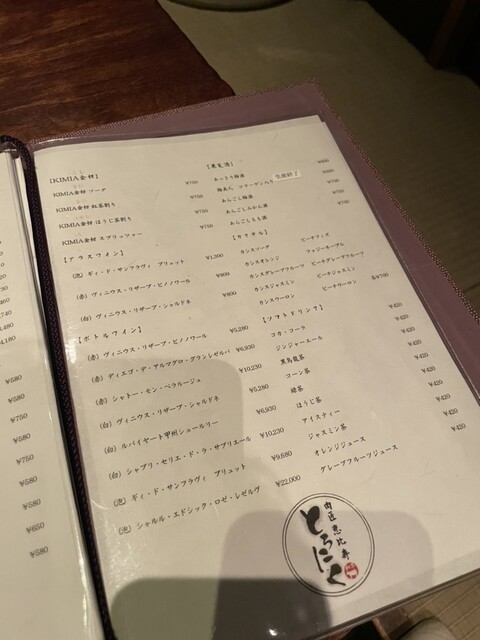 740
4,180
¥580
¥580
¥750
¥580
¥750
¥580
¥580
¥650
¥580
【KIMIA金柑】
KIMIA金柑 ソーダ ¥750
KIMIA金柑 紅茶割り ¥750
KIMIA金柑 ほうじ茶割り ¥750
KIMIA金柑 スプリッツァー ¥750
【グラスワイン】
(泡) ギィ・ド・サンフラヴィ ブリュット ¥1,300
(赤) ヴィニウス・リザーブ・ピノノワール ¥800
(白) ヴィニウス・リザーブ・シャルドネ ¥800
【ボトルワイン】
(赤) ヴィニウス・リザーブ・ピノノワール ¥5,280
(赤) ディエゴ・デ・アルマグロ・グランレゼルバ ¥6,930
(赤) シャトー・モン・ペラルージュ ¥10,230
(白) ヴィニウス・リザーブ・シャルドネ ¥5,280
(白) ルバイヤート甲州シュールリー ¥6,930
(白) シャブリ・セリエ・ド・ラ・サブリエール ¥10,230
(泡) ギィ・ド・サンフラヴィ ブリュット ¥9,680
(泡) シャルル・エドシック・ロゼ・レゼルヴ ¥22,000
【果実酒】
あっさり梅酒
梅あん コラーゲン入り 生産終了
あらごし梅酒
あらごしみかん酒
あらごしもも酒
【カクテル】
カシスソーダ ピーチフィズ
カシスオレンジ ファジーネーブル
カシスグレープフルーツ ピーチグレープフルーツ
カシスジャスミン ピーチジャスミン
カシスウーロン ピーチウーロン 各¥700
【ソフトドリンク】
コカ・コーラ ¥420
ジンジャーエール ¥420
黒烏龍茶 ¥420
コーン茶 ¥420
緑茶 ¥420
ほうじ茶 ¥420
アイスティー ¥420
ジャスミン茶 ¥420
オレンジジュース ¥420
グレープフルーツジュース ¥420
肉匠 恵比寿
とろにく